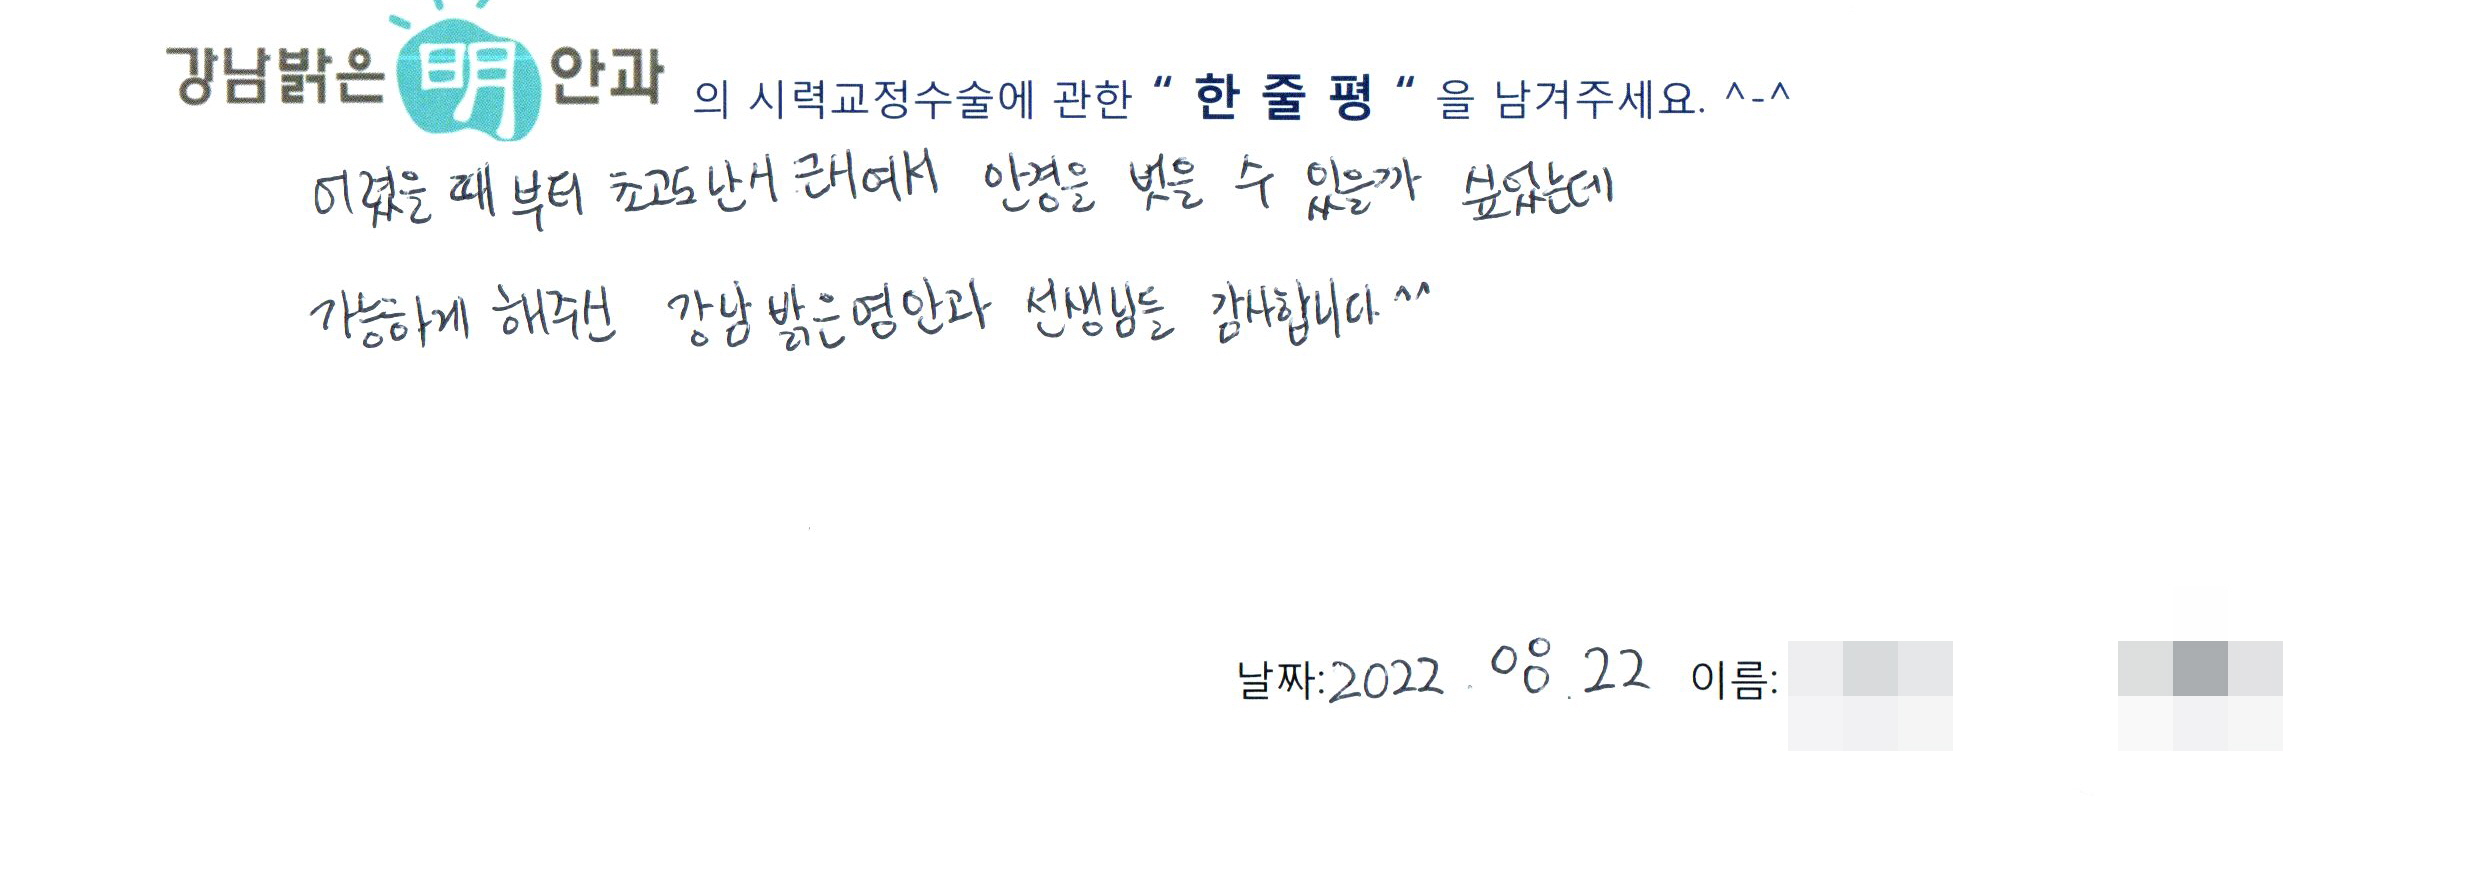 강남밝은明안과 의 시력교정수술에 관한 “ 한 줄 평 “ 을 남겨주세요. ^-^
어렸을 때 부터 초고도난시 근시여서 안경을 벗을 수 있을까 싶었는데
가능하게 해주신 강남밝은명안과 선생님들 감사합니다.^^
날짜:2022.08.22 이름: